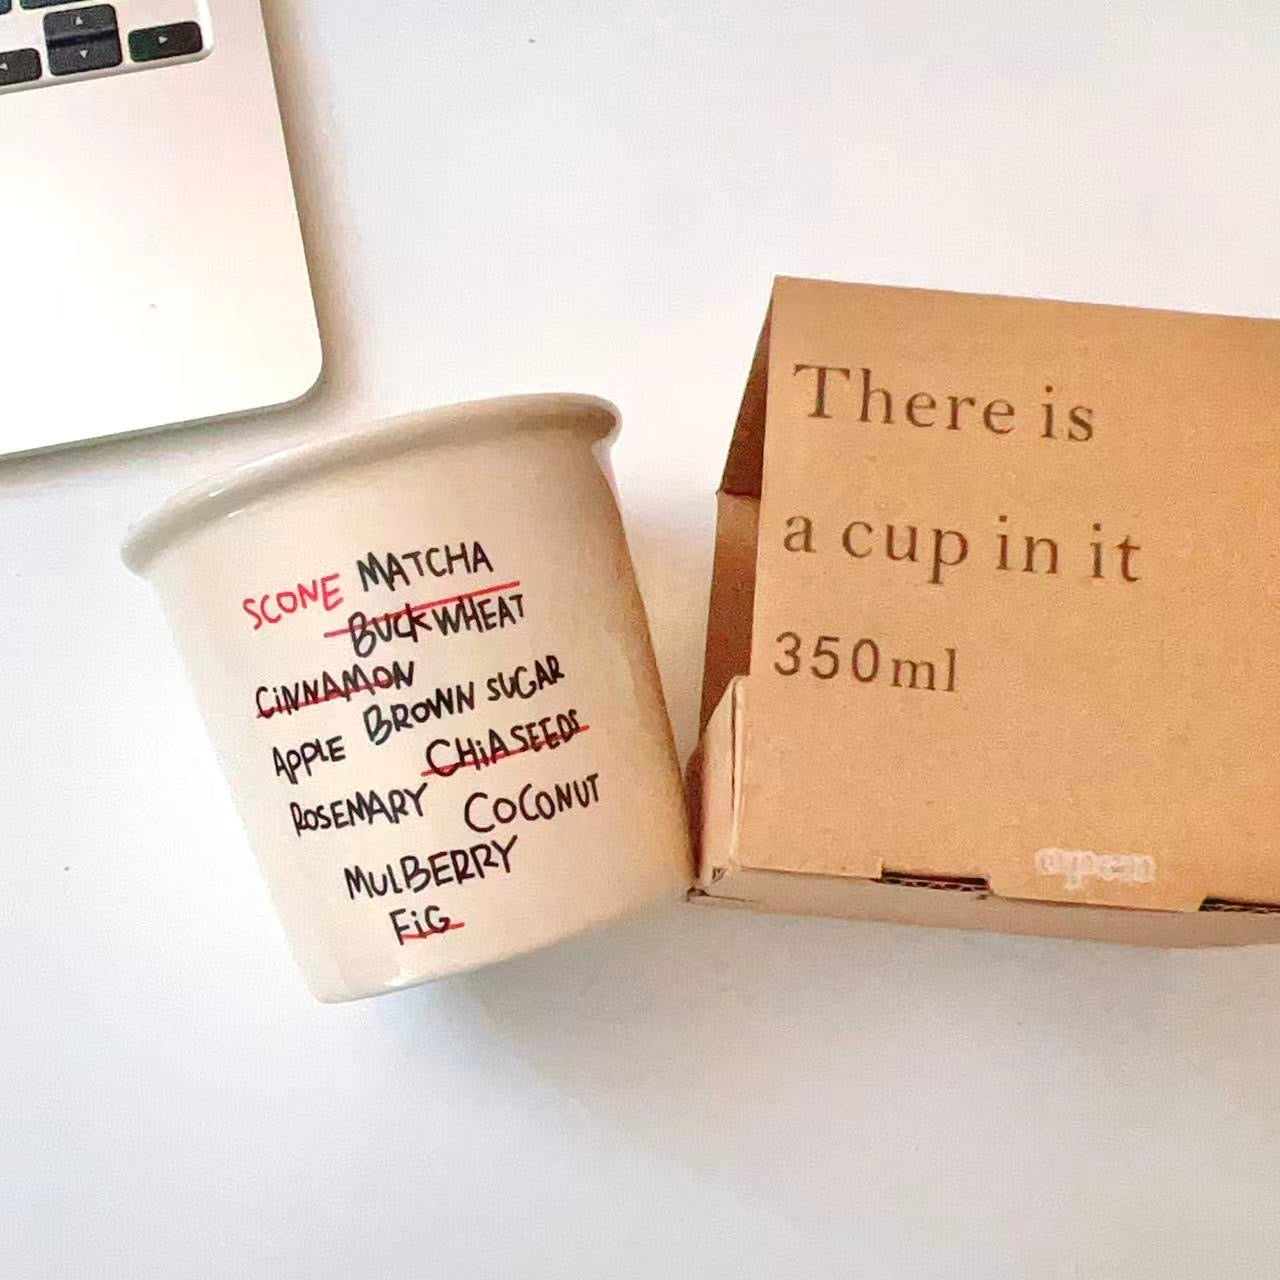 SCONE MATCHA
BUCKWHEAT
CiNNAMON
BROWN SUGAR
APPLE
CHiA SEEDS
ROSEMARY COCONUT
MULBERRY
FiG
There is
a cup in it
350ml
open